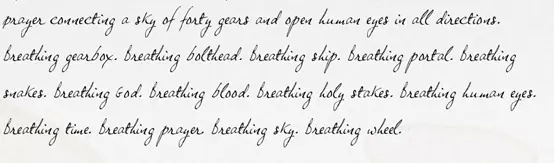 prayer connecting a sky of forty gears and open human eyes in all directions.
breathing gearbox. breathing bolthead. breathing ship. breathing portal. breathing
snakes. breathing God. breathing blood. breathing holy stakes. breathing human eyes.
breathing time. breathing prayer. breathing sky. breathing wheel.